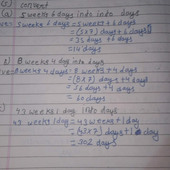 convert
(a) 5 weeks 6 days into days
5 weeks 6 days = 5 weeks + 6 days
= (5×7) days + 6 days
days + 6 days
days
8 weeks 4 day into days
8 weeks 4 days = 8 weeks + 4 days
= (8×7) days + 4 days
= 56 days + 4 days
= 60 days
43 weeks 1 day into days
43 weeks 1 day = 43 weeks + 1 day
= (43×7) days + 1 day
= 302 days